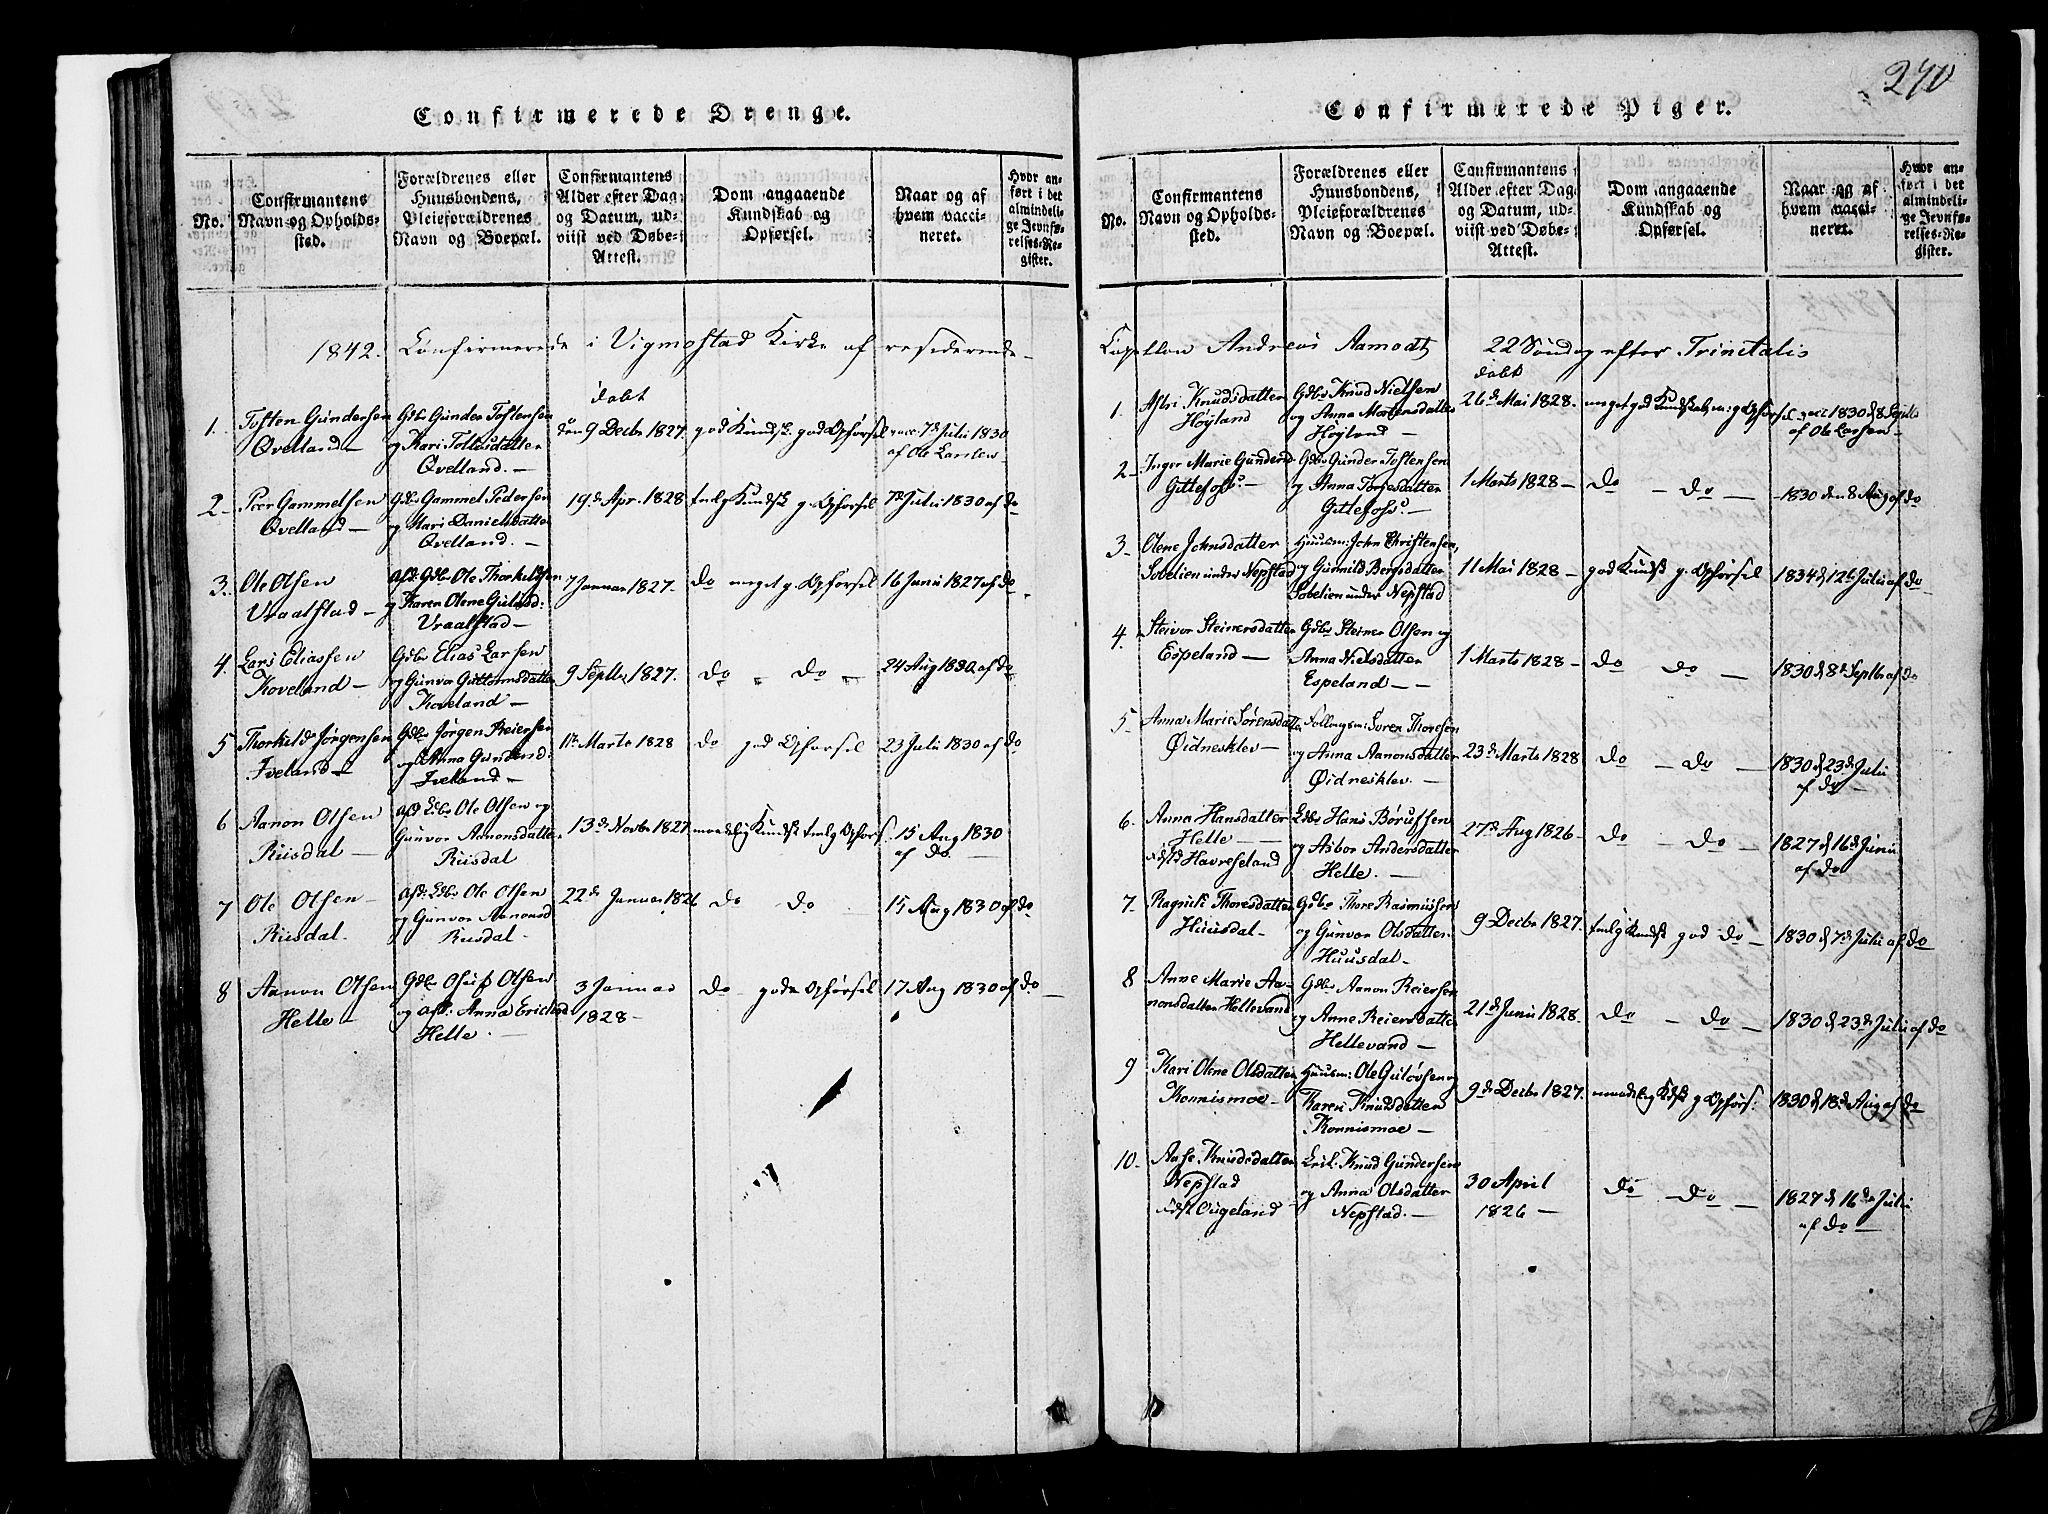 270
Confirmerede Drenge.
No.
Confirmantens
Navn og Opholds-
sted.
Forældrenes eller
Huusbondens,
Pleieforældrenes
Navn og Boepæl.
Confirmantens
Alder efter Dag
og Datum, ud-
viist ved Døbe-
Attest.
Dom angaaende
Kundskab og
Opførsel.
Naar og af
hvem vacci-
neret.
Hvor an-
ført i det
almindeli-
ge Jevnfø-
relses-Re-
gister.
1842. Confirmerede i Vigmostad Kirke af residerende
1.
Tosten Gundersen
Qvelland
Gdbr Gunder Tostensen
og Kari Tollusdatter
Qvelland.
døbt
den 9 Decbr 1827.
god Kundsk. god Opførsel
vacc. 7d Julii 1830
af Ole Larsen
2
Peer Gammelsen
Qvelland
Gdbr Gammel Pedersen
og Mari Danielsdatter
Qvelland.
19d Apr. 1828
tmlg Kundsk g. Opførsel
7d Julii 1830 af do
3.
Ole Olsen
Vraalstad
afd. Gdbr Ole Thorkildsen
og Karen Olene Gulusd:
Vraalstad
7 Januar 1827.
do meget g. Opførsel
16 Junii 1827 af do
4.
Lars Eliassen
Koveland
Gdbr Elias Larsen
og Gunvor Guttormsdatter
Koveland
9 Septbr 1827.
do do
24 Aug 1830 af do
5
Thorkild Jørgensen
Iveland
Gdbr Jørgen Reiersen
og Anna Gundersd.
Iveland
11te Marts 1828
do god Opførsel
23 Julii 1830 af do
6
Aanon Olsen
Riisdal
afd Ldbr Ole Olsen og
Gunvor Aanonsdatter
Riisdal
13d Novbr 1827
maadelig Kundsk tmlg Opførs.
15 Aug 1830
af do.
7
Ole Olsen
Riisdal.
afd. Ldbr Ole Olsen
og Gunvor Aanonsd
Riisdal
22d Januar 1826
do do
15 Aug 1830 af do
8
Aanon Olsen
Helle
Gdbr Olsen
og afd. Anna Ericksd
Helle
3 Januar
1828
do god Opførsel
17 Aug 1830 af do
Confirmerede Piger.
No.
Confirmantens
Navn og Opholds-
sted.
Forældrenes eller
Huusbondens,
Pleieforældrenes
Navn og Boepæl.
Confirmantens
Alder efter Dag
og Datum, ud-
viist ved Døbe-
Attest.
Dom angaaende
Kundskab og
Opførsel.
Naar og af
hvem vacci-
neret.
Hvor an-
ført i det
almindeli-
ge Jevnfø-
relses-Re-
gister.
Capellan Andreas Aamodt 22 Søndag efter Trinitatis
1.
Asbri Knudsdatter
Høyland
Gdbr Knud Nielsen
og Anna Mortensdatter
Høyland
døbt
26d Mai 1828.
meget god Kundskab m: g Opførsel
vacc 1830 d 8 Septbr
af Ole Larsen
2
Inger Marie Gundersd
Gittefoss
Gdbr Gunder Tostensen
og Anna Torjesdatter
Gittefoss.
1 Marts 1828
do do
1830 den 8 Aug af do
3
Olene Johnsdatter
Sobelien under Nepstad
Huusm: John Christensen,
og Gunnild Bergsdatter
Sobelien under Nepstad
11 Mai 1828
god Kundsk g. Opførsel
1834 d 12te Julii af do
4.
Steivor Steinersdatter
Espeland
Gdbr Steiner Olsen og
Anna Nielsdatter
Espeland
1 Marts 1828
do do
1830 d 8d Septbr af do
5
Anna Marie Sørensdatter
Øidnesklev
Søren Thoresen
og Anna Aanonsdatter
Øidnesklev.
23d Marts 1828
do do
1830 d 23d Julii
af do
6.
Anna Hansdatter
Helle
Fdst Havreseland
Ldbr Hans Børufsen
og Asbor Andersdatter
Helle.
27d Aug 1826
do do
1827 d 16d Junii
af do
7.
Ragnild Thoresdatter
Huusdal
Gdbr Thore Rasmussen
og Gunvor Olsdatter
Huusdal
9 Decbr 1827.
tmlg Kundsk god do
1830 d 7d Julii af do
8
Anne Marie Aa-
nonsdatter Hellevand
Gdbr Aanon Reiersen
og Anne Reiersdatter
Hellevand
21d Junii 1828.
do do
1830 d 23d Julii af do
9
Kari Oline Olsdatter
Konnismoe
Huusm: Ole Guløvsen og
Karen Knudsdatter
Konnismoe
9d Decbr 1827.
maadelig Kdsk g Opførs:
1830 d 18d Aug af do
10.
Aase Knudsdatter
Nepstad
Fdst Ougeland
Knud Gundersen
og Anna Olsdatter
Nepstad.
30 April
1826
do do
1827 d 16de Julii
af do